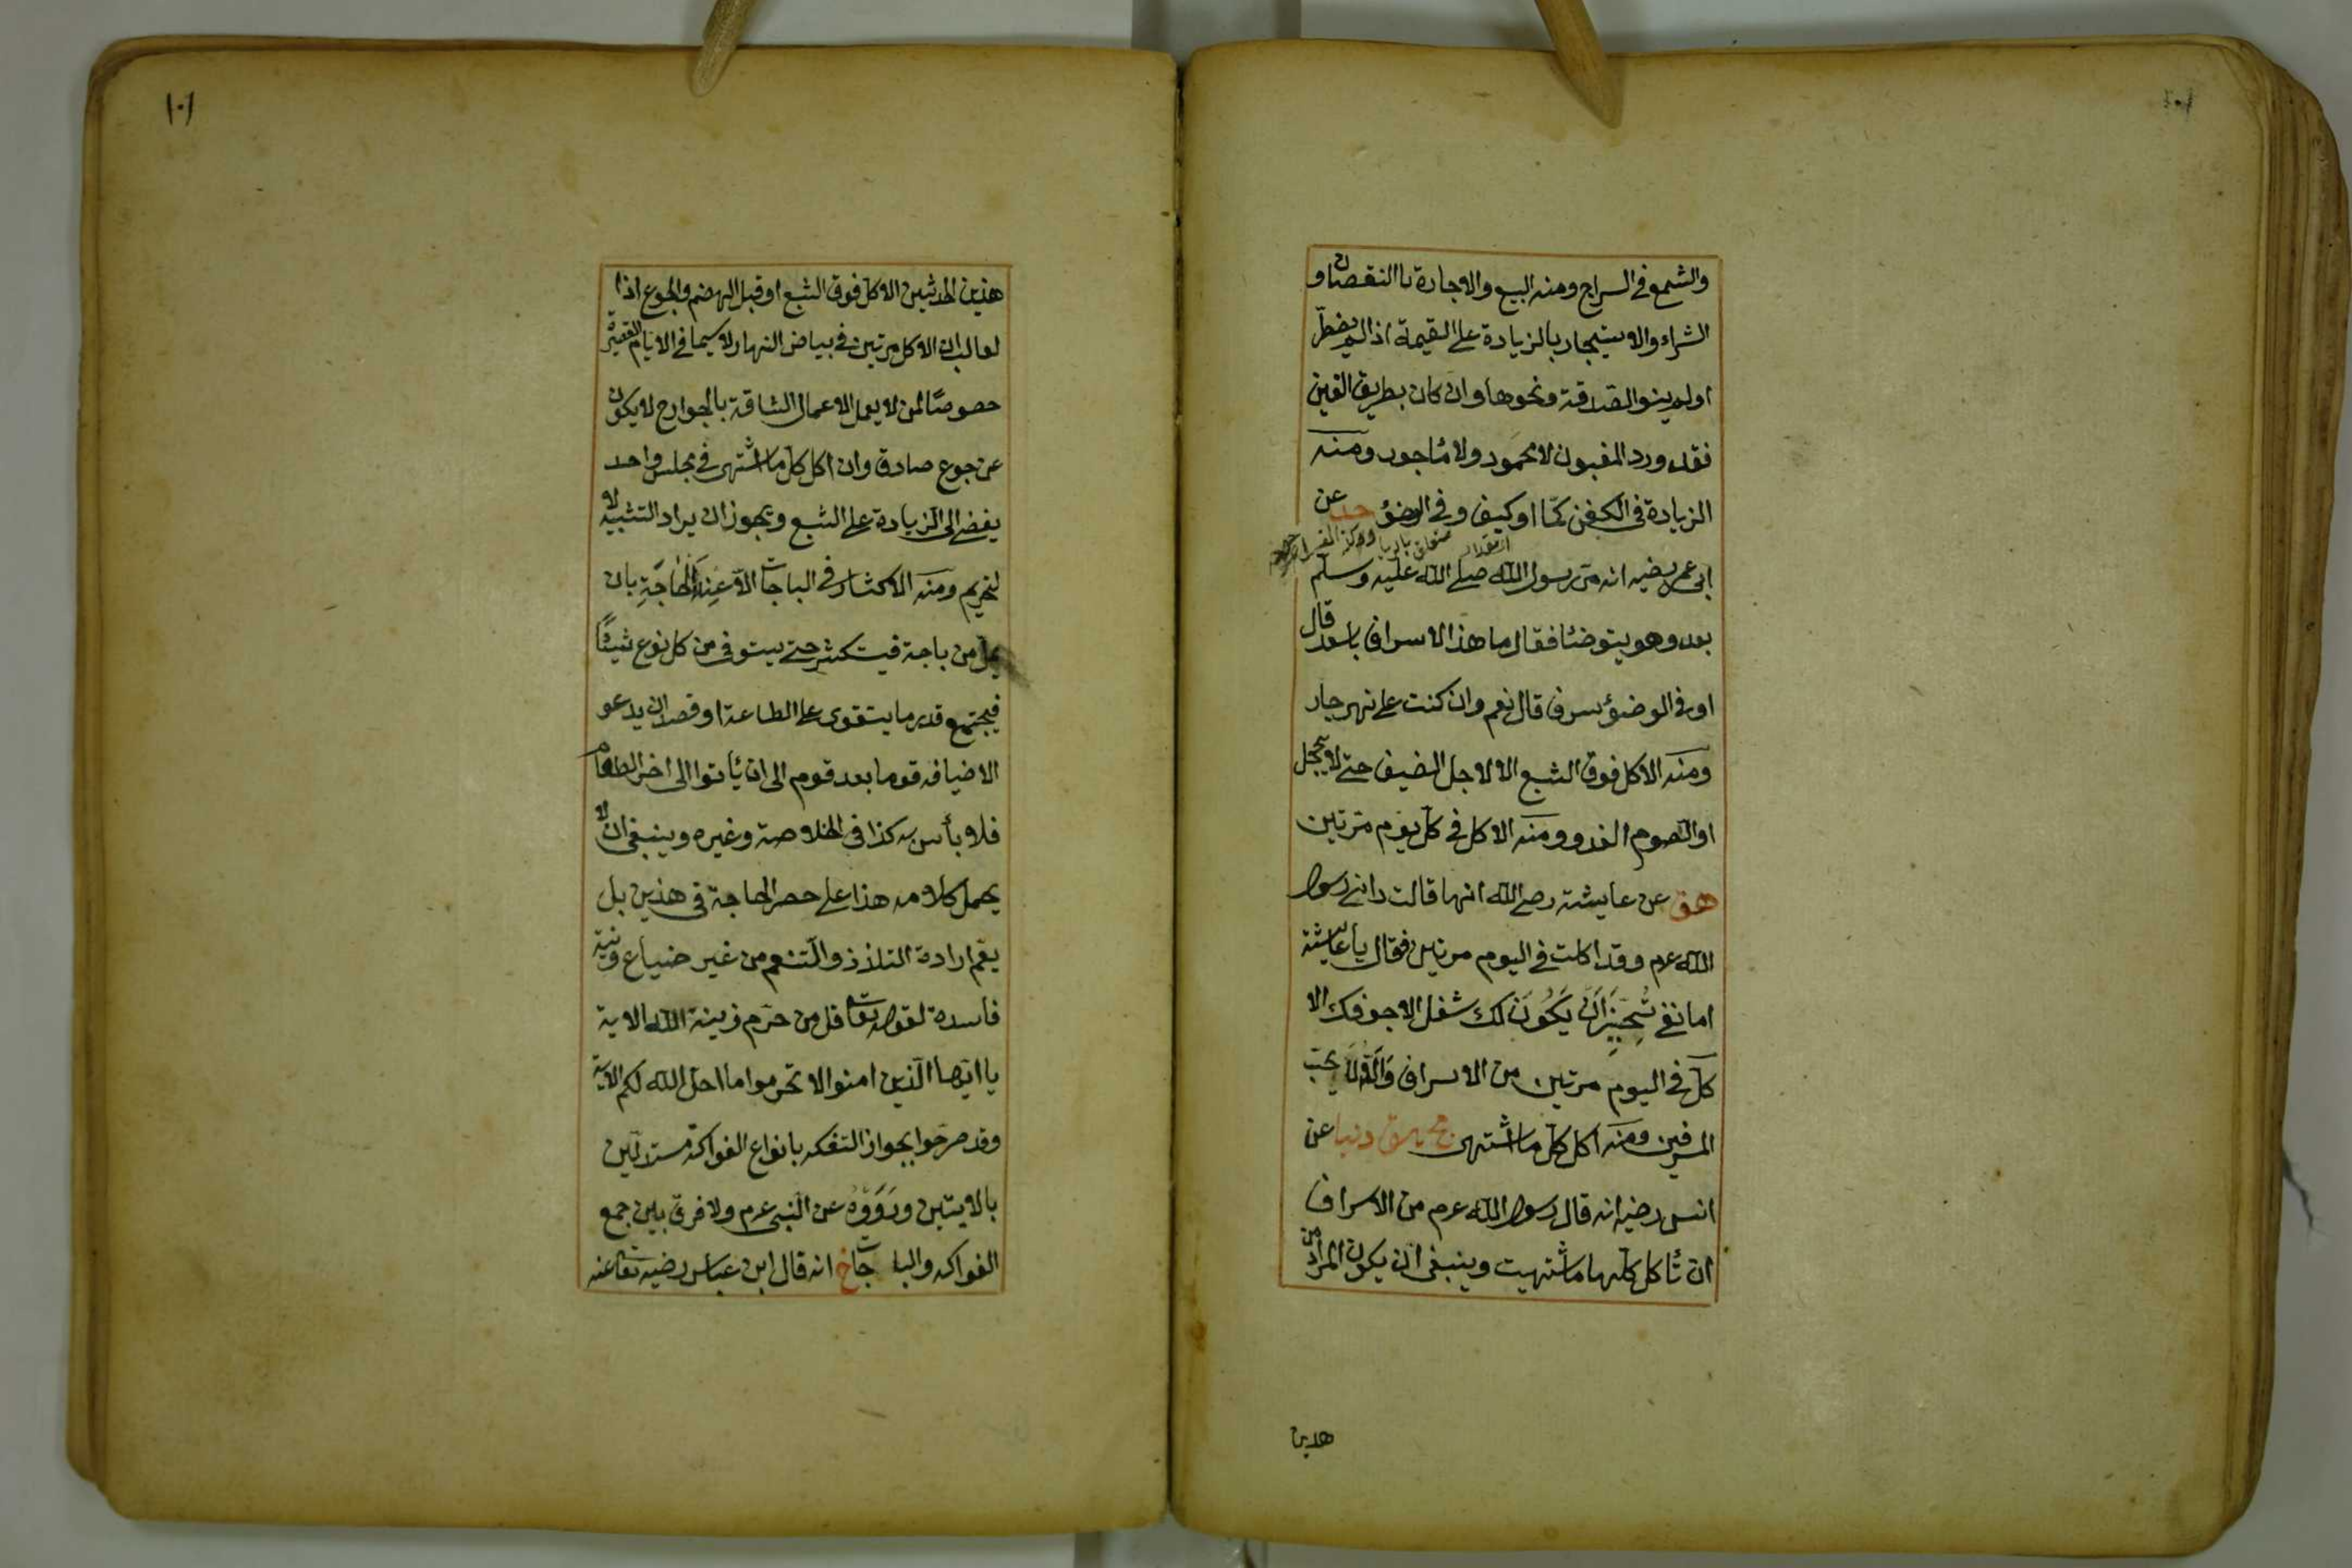 والشمع في السراج ومنه البيع والاجارة بالنقصان و
الشراء والاستيجار بالزيادة على القيمة اذا لم يضطر
اولم ينو الصدقة ونحوها وان كان بطريق الغبن
فقد ورد المغبون لا محمود ولا مأجور ومنه
الزيادة في الكفن كما او كيف وفي الوضؤ حد عن
ابى عمر رضيه انه مر رسول الله صلى الله عليه وسلم
بعد وهو يتوضئا فقال ما هذا الاسراف ياسعد قال
اوفى الوضؤ سرف قال نعم وان كنت على نهر جار
ومنه الاكل فوق الشبع الا لاجل الضيف حتى لا يخجل
او الصوم الغد و ومنه الاكل في كل يوم مرتين
هق عن عايشة رضى الله انها قالت رانى رسول
الله عم وقد اكلت في اليوم مرتين فقال يا عايشة
اما تحبين ان يكون لك شغل الا جوفك الا
كل في اليوم مرتين من الاسراف والله لا يحب
المرفين ومنه اكل كل ما اشتهى مج هق دنيا عن
انس رضيه انه قال رسول الله عم من الاسراف
ان تأكل كلها ما شتهيت وينبغى ان يكون المراد من
هدين
١٠١
هذين الحدثين الاكل فوق الشبع او قبل الهضم والجوع اذا
لغالب ان الاكل مرتين في بياض النهار لا سيما في الايام القصيرة
حصوصًا لمن لا يعمل الاعمال الشاقة بالجوارح لا يكون
عن جوع صادق وان اكل كل ما اشتهى في مجلس واحد
يفضى الى الزيادة على الشبع ويجوز ان يراد التشبيه لا
لتحريم ومنه الاكثار في الباجات الا عند الحاجة بان
يمل من باجة فيستكثر حتى يستوفى من كل نوع شيئًا
فيجتمع قدر ما يتقوى على الطاعة او قصد ان يدعو
الاضيافه قوما بعد قوم الى ان يأتوا الى اخر الطعام
فلا بأس به كذا فى الخلاصة وغيره وينبغى ان لا
يحمل كلامه هذا على حصر الحاجة في هذين بل
يعم ارادة التلذذ والتنعم من غير ضياع ونية
فاسدة لقوله تعا قل من حرم زينة الله الاية
يا ايها الذين امنوا لا تحرموا ما احل الله لكم الاية
وقد صرحوا بجواز التفكه بانواع الفواكه مستدلين
بالايتين ورووه عن النبى عم ولا فرق بين جمع
الفواكه والباجات خ انه قال ابن عباس رضيه تعا عنه